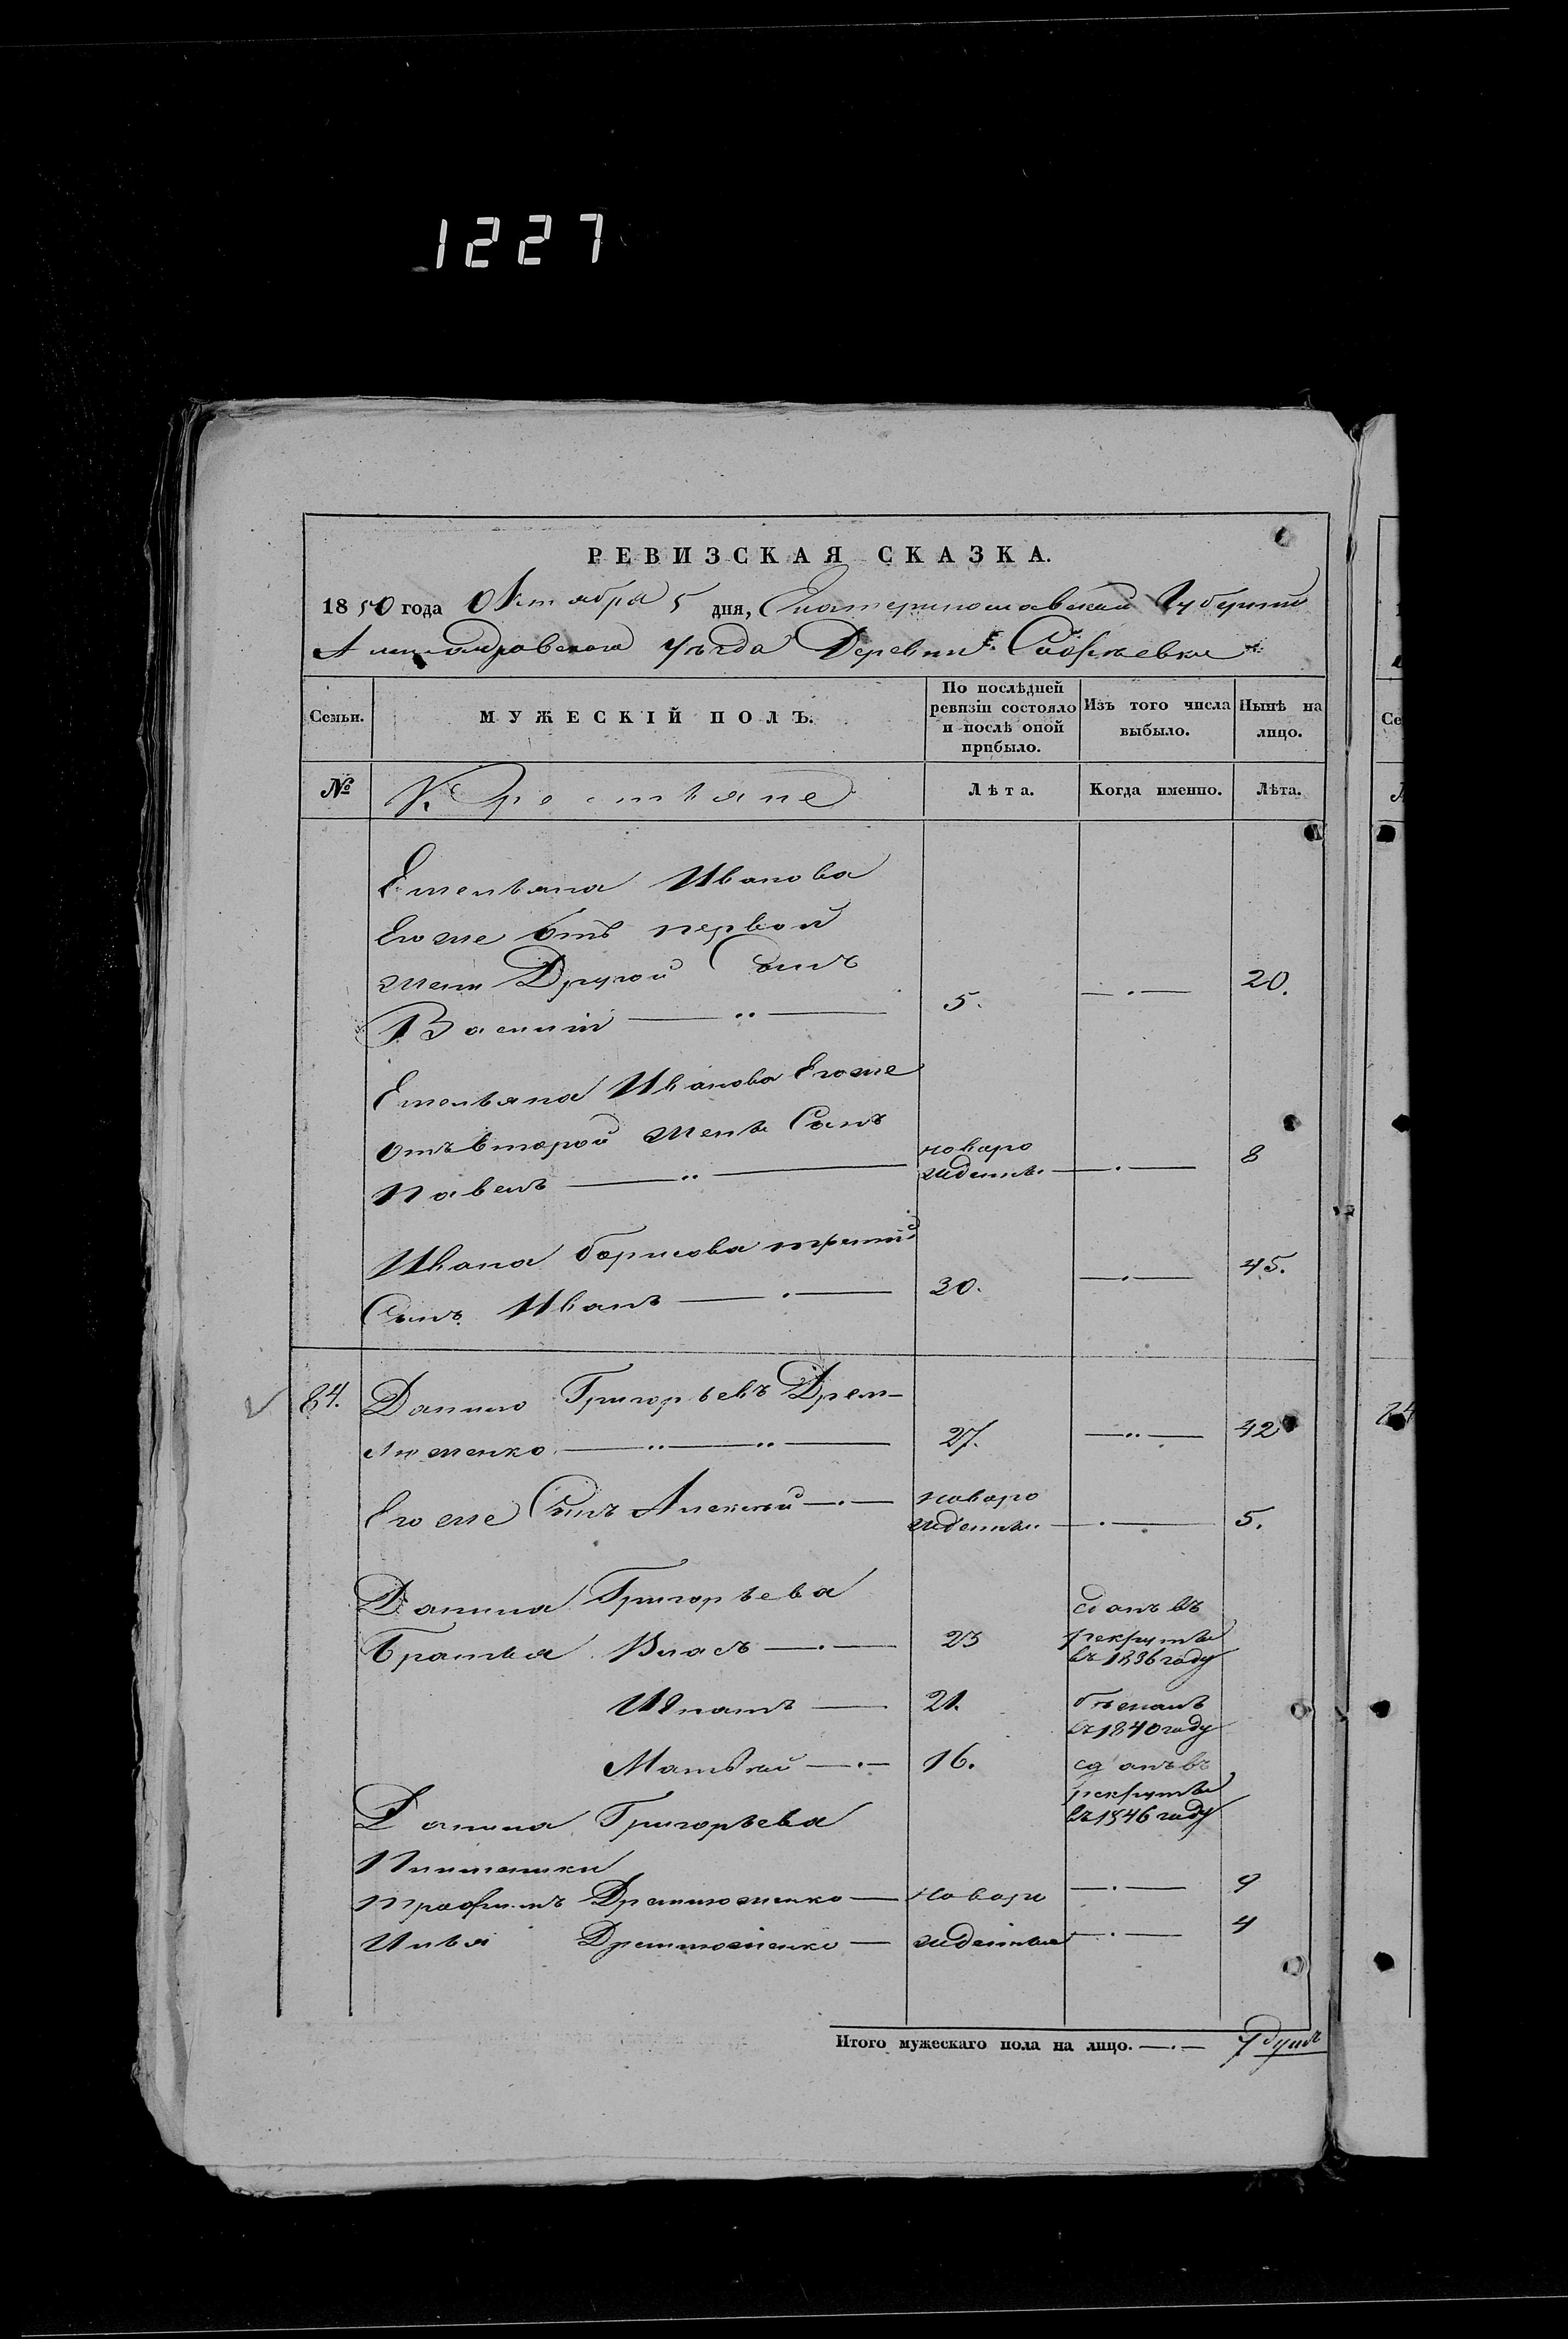 1227
РЕВИЗСКАЯ СКАЗКА.
1850 года Октября 5 дня, Екатеринославской Губернии
Александровскаго уѣзда Деревни Софіевки
Семьи.
МУЖЕСКІЙ ПОЛЪ.
По послѣдней ревизіи состояло и послѣ оной прибыло.
Изъ того числа выбыло.
Нынѣ на лицо.
№
Крестьяне
Лѣта.
Когда именно.
Лѣта.
Емельяна Иванова
Егоже отъ первой
жены Другой Сынъ
Василій 5. 20.
Емельяна Иванова Егоже
отъ второй жены Сынъ
Павелъ новорожденъ 8
Ивана Борисова третій
Сынъ Иванъ 30. 45.
84. Данило Григорьевъ
27. 42
Егоже Сынъ Алексѣй новорожденъ 5.
Данила Григорьева
Братья Власъ 23 сданъ въ рекруты въ 1836 году
Игнатъ 21. бѣжалъ въ 1840 году
Матвѣй 16. сданъ въ рекруты въ 1846 году
Данила Григорьева
Племянники
Трофимъ Дремлюженко новоро 9
Илья Дремлюженко жденные 4
Итого мужескаго пола на лицо. 7 душъ